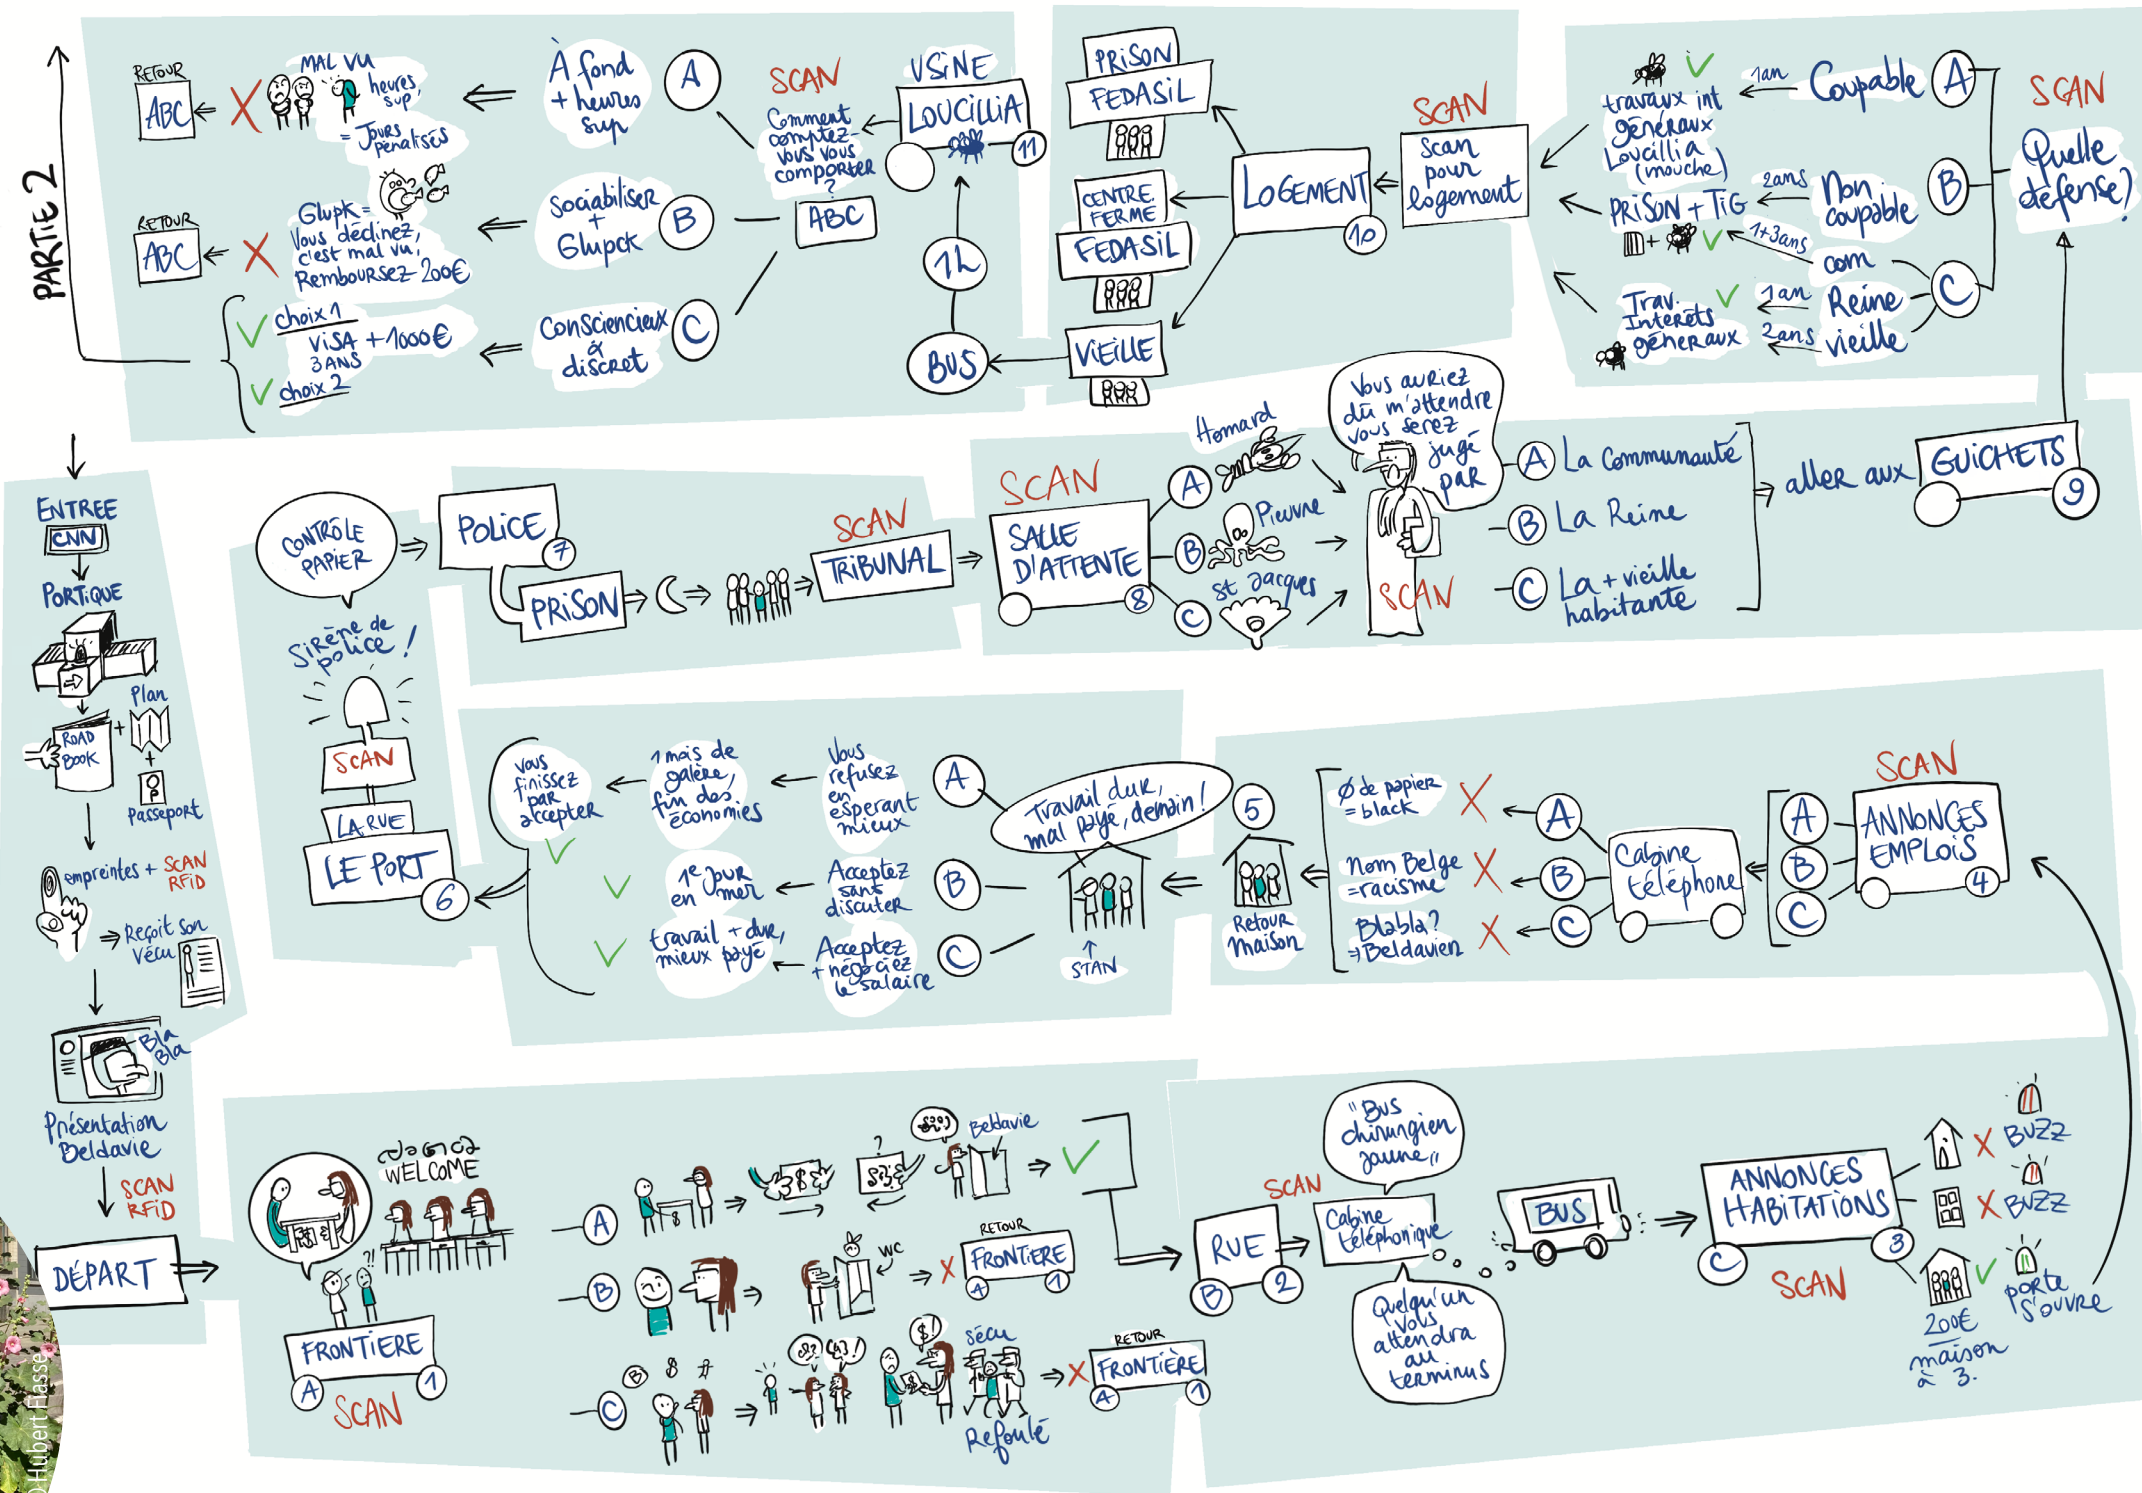 PARTIE 2
RETOUR
ABC
MAL VU
heures
sup,
= Jours
penalisés
À fond
+ heures
sup
A
SCAN
Comment
comptez-
vous vous
comporter
?
ABC
USINE
LOUCILLIA
11
RETOUR
ABC
Glupk =
Vous déclinez,
c'est mal vu,
Remboursez 200€
Sociabiliser
+
Glupck
B
choix 1
VISA
3 ANS
+1000€
choix 2
Consciencieux
&
discret
C
1h
BUS
PRISON
FEDASIL
CENTRE
FERME
FEDASIL
VIEILLE
LOGEMENT
10
SCAN
Scan
pour
logement
travaux int
généraux
Loucillia
(mouche)
1an
Coupable
A
PRISON + TIG
2ans
Non
coupable
B
+
1+3ans
com
Trav.
Interêts
géneraux
1an
Reine
2ans
vieille
C
SCAN
Quelle
défense?
ENTREE
CNN
PORTIQUE
ROAD
BOOK
+
Plan
+
Passeport
empreintes + SCAN
RFID
Reçoit son
vécu
Bla
Bla
Présentation
Beldavie
SCAN
RFID
DÉPART
CONTRÔLE
PAPIER
Sirène de
police!
SCAN
LA RUE
LE PORT
6
POLICE
7
PRISON
SCAN
TRIBUNAL
SCAN
SALLE
D'ATTENTE
8
A
Homard
B
Pieuvre
C
St Jacques
Vous auriez
dû m'attendre
vous serez
jugé
par
SCAN
A La Communauté
B La Reine
C La + vieille
habitante
aller aux
GUICHETS
9
vous
finissez
par
accepter
1 mois de
galère,
fin des
économies
Vous
refusez
en
esperant
mieux
A
1e jour
en mer
Acceptez
sans
discuter
B
travail + dur,
mieux payé
Acceptez
+ négociez
le salaire
C
Travail dur,
mal payé, demain!
STAN
5
Retour
maison
Ø de papier
= black
A
Nom Belge
= racisme
B
Blabla?
Beldavien
C
Cabine
téléphone
A
B
C
SCAN
ANNONCES
EMPLOIS
4
WELCOME
?!
FRONTIERE
A
1
SCAN
A
$
$
?
Beldavie
B
WC
RETOUR
FRONTIERE
A
1
C
B
$
$!
Sécu
Refoulé
RETOUR
FRONTIÈRE
A
1
SCAN
RUE
B
2
"Bus
chirurgien
jaune"
Cabine
téléphonique
Quelqu'un
vous
attendra
au
terminus
BUS
ANNONCES
HABITATIONS
C
3
SCAN
BUZZ
BUZZ
200€
maison
à 3.
porte
s'ouvre
© Hubert Flasse